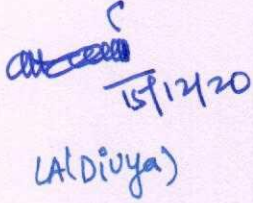 15/12/20
LA(Divya)